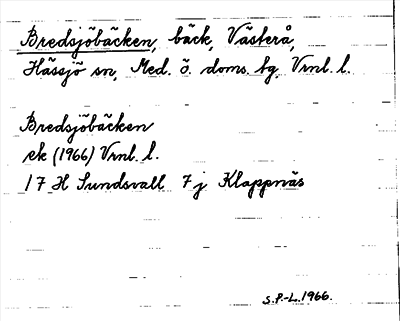 Bredsjöbäcken, bäck, Västerå,
Hässjö sn, Med. ö. doms. bg, Vrnl. l.
Bredsjöbäcken
ek (1966) Vrnl. l.
17 H Sundsvall 7 j Klappnäs
S.P.-L. 1966.